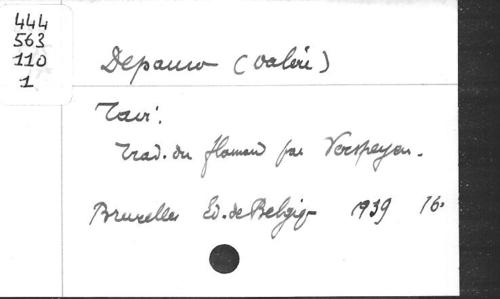 444
563
110
1
Depauw (Valère)
Tavi.
Trad. du flamand par Verspeyen.
Bruxelles Ed. de Belgiq 1939 16.